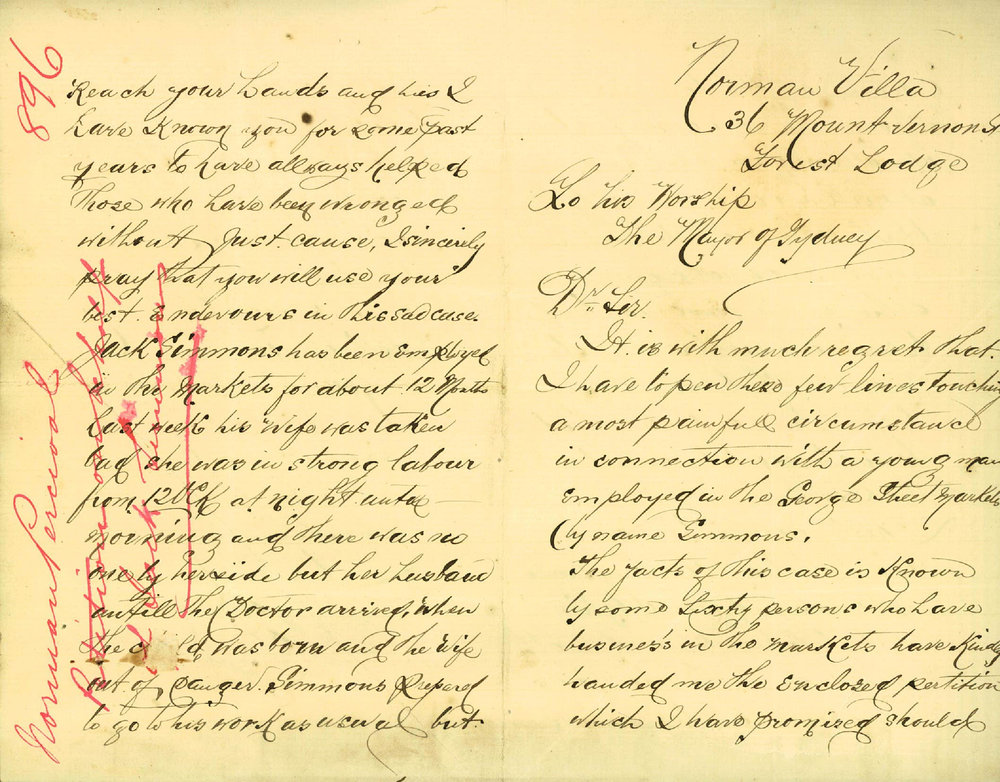 Norman Villa
36 Mount Vernon St
Forest Lodge
To his Worship
The Mayor of Sydney
Dr. Sir.
It is with much regret that
I have to pen these few lines touching
a most painfull circumstance
in connection with a young man
Employed in the George Street Markets
by name Simmons.
The facts of this case is Known
by some Sixty persons who have
business's in the markets have Kindly
handed me the Enclosed pertition
which I have promised should
Reach your hands and his I
have Known you for some past
years to have allways helped
Those who have been wronged
without Just cause, I sincerely
pray that you will use your
best Endevours in this sad case.
Jack Simmons has been Employed
in the Markets for about 12 Months
Last week his Wife was taken
bad she was in strong labour
from 12 OCK at night untill
morning and there was no
one by her side but her husband
untill the Doctor arrived, when
the child was born and the Wife
out of danger. Simmons prepared
to go to his work as usual but
896
Norman Percival
Petition on behalf
of Jack Simmons